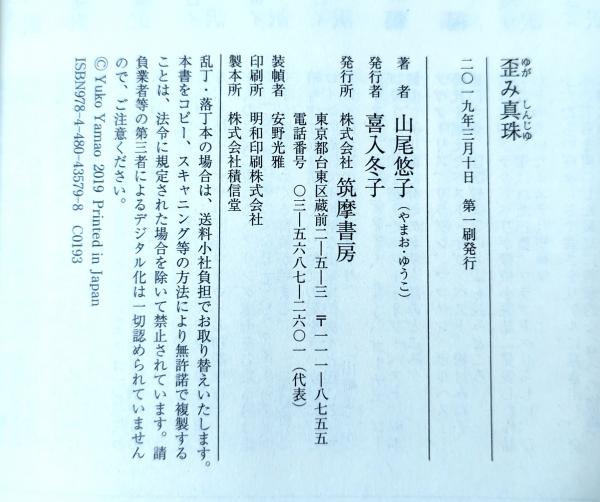 歪み真珠
ゆが しんじゅ
二〇一九年三月十日 第一刷発行
著 者 山尾悠子(やまお・ゆうこ)
発行者 喜入冬子
発行所 株式会社 筑摩書房
東京都台東区蔵前二—五—三 〒一一一—八七五五
電話番号 〇三—五六八七—二六〇一(代表)
装幀者 安野光雅
印刷所 明和印刷株式会社
製本所 株式会社積信堂
乱丁・落丁本の場合は、送料小社負担でお取り替えいたします。
本書をコピー、スキャニング等の方法により無許諾で複製する
ことは、法令に規定された場合を除いて禁止されています。請
負業者等の第三者によるデジタル化は一切認められていません
ので、ご注意ください。
©Yuko Yamao 2019 Printed in Japan
ISBN978-4-480-43579-8 C0193